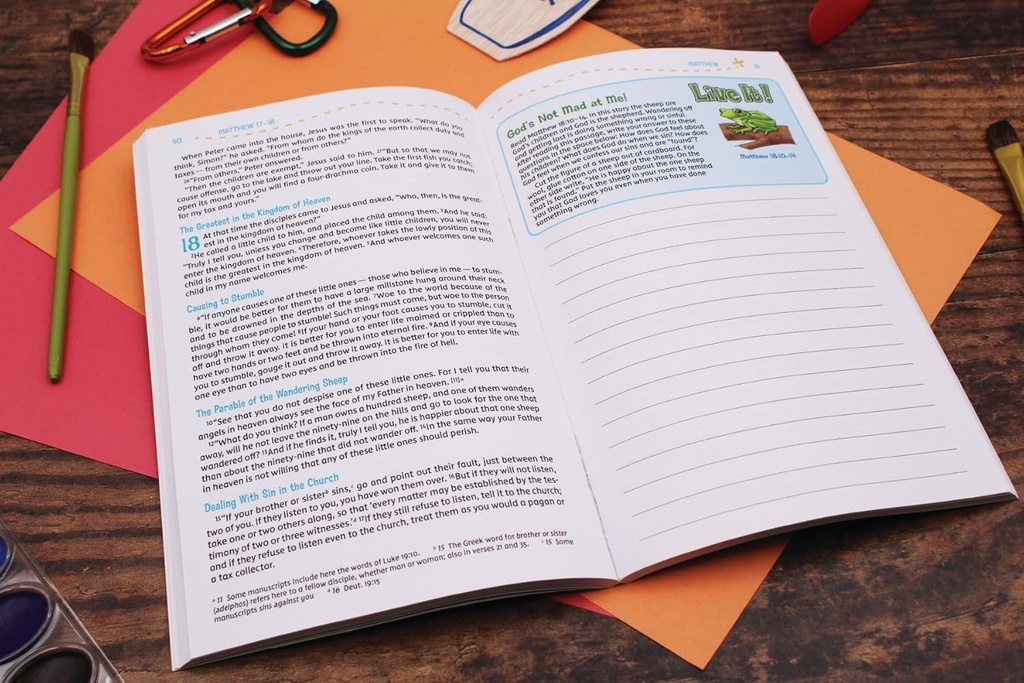 50 MATTHEW 17–18
When Peter came into the house, Jesus was the first to speak. "What do you
think, Simon?" he asked. "From whom do the kings of the earth collect duty and
taxes — from their own children or from others?"
26"From others," Peter answered.
"Then the children are exempt," Jesus said to him. 27"But so that we may not
cause offense, go to the lake and throw out your line. Take the first fish you catch;
open its mouth and you will find a four-drachma coin. Take it and give it to them
for my tax and yours."
The Greatest in the Kingdom of Heaven
18 At that time the disciples came to Jesus and asked, "Who, then, is the great-
est in the kingdom of heaven?"
2He called a little child to him, and placed the child among them. 3And he said:
"Truly I tell you, unless you change and become like little children, you will never
enter the kingdom of heaven. 4Therefore, whoever takes the lowly position of this
child is the greatest in the kingdom of heaven. 5And whoever welcomes one such
child in my name welcomes me.
Causing to Stumble
6"If anyone causes one of these little ones — those who believe in me — to stum-
ble, it would be better for them to have a large millstone hung around their neck
and to be drowned in the depths of the sea. 7Woe to the world because of the
things that cause people to stumble! Such things must come, but woe to the person
through whom they come! 8If your hand or your foot causes you to stumble, cut it
off and throw it away. It is better for you to enter life maimed or crippled than to
have two hands or two feet and be thrown into eternal fire. 9And if your eye causes
you to stumble, gouge it out and throw it away. It is better for you to enter life with
one eye than to have two eyes and be thrown into the fire of hell.
The Parable of the Wandering Sheep
10"See that you do not despise one of these little ones. For I tell you that their
angels in heaven always see the face of my Father in heaven. [11]a
12"What do you think? If a man owns a hundred sheep, and one of them wanders
away, will he not leave the ninety-nine on the hills and go to look for the one that
wandered off? 13And if he finds it, truly I tell you, he is happier about that one sheep
than about the ninety-nine that did not wander off. 14In the same way your Father
in heaven is not willing that any of these little ones should perish.
Dealing With Sin in the Church
15"If your brother or sisterb sins,c go and point out their fault, just between the
two of you. If they listen to you, you have won them over. 16But if they will not listen,
take one or two others along, so that 'every matter may be established by the tes-
timony of two or three witnesses.'d 17If they still refuse to listen, tell it to the church;
and if they refuse to listen even to the church, treat them as you would a pagan or
a tax collector.
a 11 Some manuscripts include here the words of Luke 19:10. b 15 The Greek word for brother or sister
(adelphos) refers here to a fellow disciple, whether man or woman; also in verses 21 and 35. c 15 Some
manuscripts sins against you d 16 Deut. 19:15
MATTHEW 51
Live It!
God's Not Mad at Me!
Read Matthew 18:10–14. In this story the sheep are
God's children and God is the shepherd. Wandering off
and getting lost is doing something wrong or sinful.
After reading this passage, write your answer to these
questions in the space below: How does God feel about
his children? What does God do when we sin? How does
God feel when we confess our sins and are "found"?
Cut the figure of a sheep out of cardboard. For
wool, glue cotton on one side of the sheep. On the
other side write, "He is happy about the one sheep
that is found." Put the sheep in your room to remind
you that God loves you even when you have done
something wrong.
Matthew 18:10–14